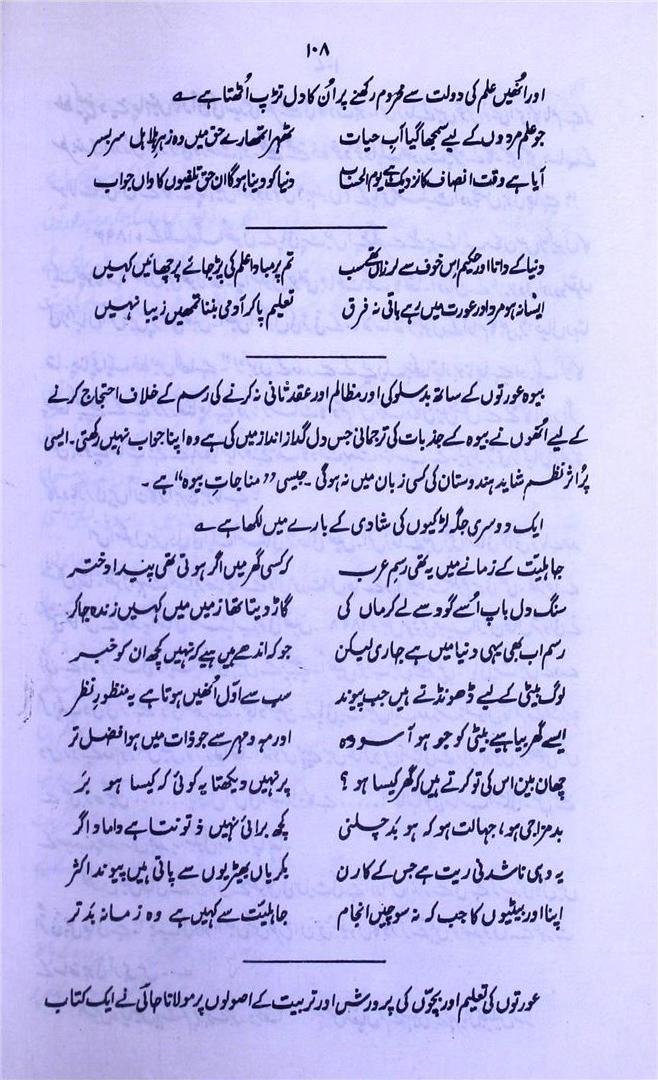 ۱۰۸
اور اُنھیں علم کی دولت سے محروم رکھنے پر اُن کا دل تڑپ اُٹھتا ہے ؎
جو علم مردوں کے لیے سمجھا گیا آبِ حیات ٹھہرا تمھارے حق میں وہ زہرِ ہلاہل سر بسر
آیا ہے وقت انصاف کا نزدیک ہے یوم الحساب دنیا کو دینا ہوگا ان حق تلفیوں کا واں جواب
دنیا کے دانا اور حکیم اس خوف سے لرزاں تھے سب تم پر مبادا علم کی پڑ جائے پرچھائیں کہیں
ایسا نہ ہو مرد اور عورت میں رہے باقی نہ فرق تعلیم پا کر آدمی بننا تمھیں زیبا نہیں
بیوہ عورتوں کے ساتھ بدسلوکی اور مظالم اور عقد ثانی نہ کرنے کی رسم کے خلاف احتجاج کرنے
کے لیے اُنھوں نے بیوہ کے جذبات کی ترجمانی جس دل گداز انداز میں کی ہے وہ اپنا جواب نہیں رکھتی۔ ایسی
پُر اثر نظم شاید ہندوستان کی کسی زبان میں نہ ہوگی۔ جیسی ”مناجاتِ بیوہ“ ہے۔
ایک دوسری جگہ لڑکیوں کی شادی کے بارے میں لکھا ہے ؎
جاہلیت کے زمانے میں یہ تھی رسمِ عرب کہ کسی گھر میں اگر ہوتی تھی پیدا دختر
سنگ دل باپ اُسے گود سے لے کر ماں کی گاڑ دیتا تھا زمیں میں کہیں زندہ جا کر
رسم اب بھی یہی دنیا میں ہے جاری لیکن جو کہ اندھے ہیں ہیے کے نہیں کچھ ان کو خبر
لوگ بیٹی کے لیے ڈھونڈتے ہیں جب پیوند سب سے اوّل اُنھیں ہوتا ہے یہ منظورِ نظر
ایسے گھر بیاہیے بیٹی کو جو ہو آسودہ اور مہ و مہر سے جو ذات میں ہو افضل تر
چھان بین اس کی تو کرتے ہیں کہ گھر کیسا ہو؟ پر نہیں دیکھتا یہ کوئی کہ کیسا ہو بَر
بدمزاجی ہو، جہالت ہو کہ ہو بدچلنی کچھ برائی نہیں ذوتونتا ہے داماد اگر
یہ وہی ناشدنی ریت ہے جس کے کارن بکریاں بھیڑیوں سے پاتی ہیں پیوند اکثر
اپنا اور بیٹیوں کا جب کہ نہ سوچیں انجام جاہلیّت سے کہیں ہے وہ زمانہ بدتر
عورتوں کی تعلیم اور بچّوں کی پرورش اور تربیت کے اصولوں پر مولانا حالی نے ایک کتاب